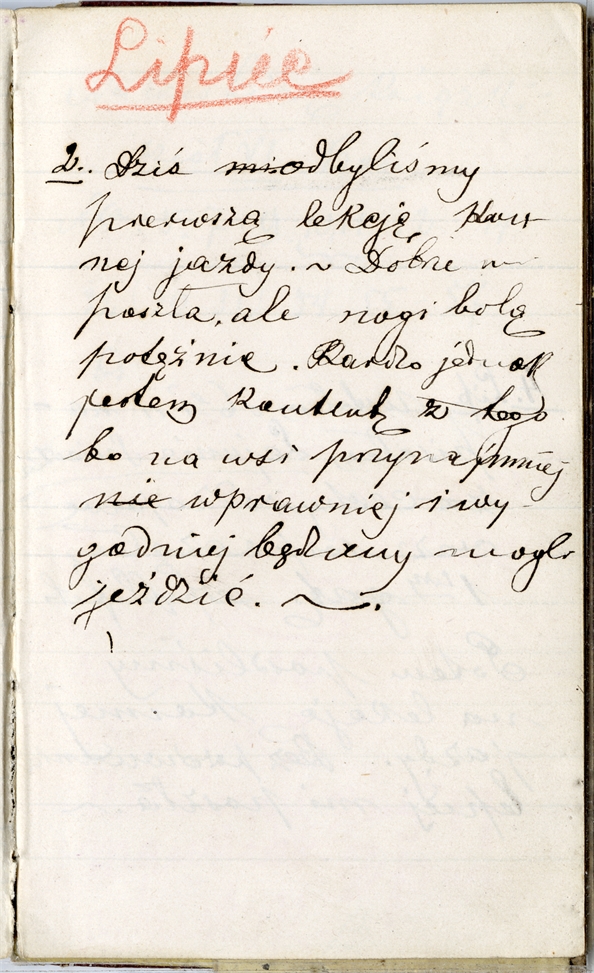 Lipiec
2. Dziś mi odbyliśmy
pierwszą lekcję kon-
nej jazdy. ~ Dobrze
poszła, ale nogi bolą
potężnie. Bardzo jednak
jestem kontent z tego
bo na wsi przynajmniej
nie wprawniej i wy-
godniej będziemy mogli
jeździć. ~.